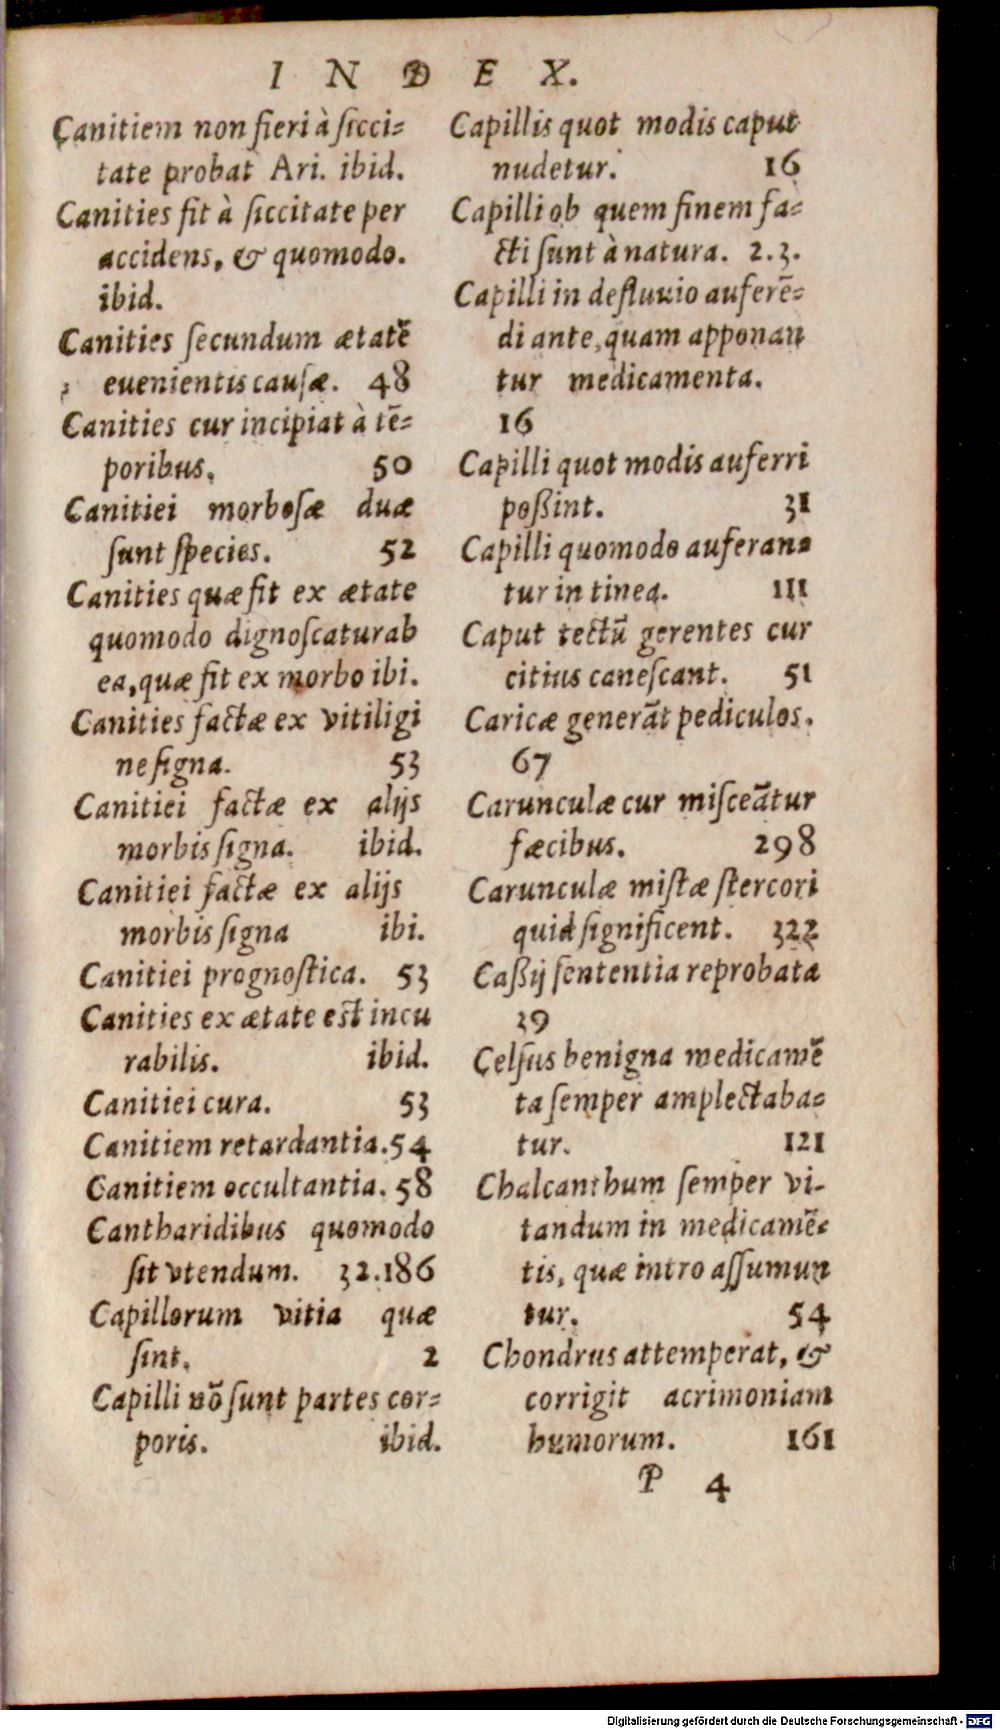 INDEX.
Canitiem non fieri à ſicci=
tate probat Ari. ibid.
Canities fit à ſiccitate per
accidens, & quomodo.
ibid.
Canities ſecundum ætatē
euenientis cauſæ. 48
Canities cur incipiat à tē=
poribus. 50
Canitiei morboſæ duæ
ſunt ſpecies. 52
Canities quæ fit ex ætate
quomodo dignoſcatur ab
ea, quæ fit ex morbo ibi.
Canities factæ ex vitiligi
ne ſigna. 53
Canitiei factæ ex alijs
morbis ſigna. ibid.
Canitiei factæ ex alijs
morbis ſigna ibi.
Canitiei prognoſtica. 53
Canities ex ætate eſt incu
rabilis. ibid.
Canitiei cura. 53
Canitiem retardantia. 54
Canitiem occultantia. 58
Cantharidibus quomodo
ſit vtendum. 32.186
Capillorum vitia quæ
ſint. 2
Capilli nō ſunt partes cor=
poris. ibid.
Capillis quot modis caput
nudetur. 16
Capilli ob quem finem fa=
cti ſunt à natura. 2.3.
Capilli in defluuio auferē=
di ante, quam apponan
tur medicamenta.
16
Capilli quot modis auferri
poßint. 31
Capilli quomodo auferan=
tur in tinea. 111
Caput tectū gerentes cur
citius caneſcant. 51
Caricæ generāt pediculos.
67
Carunculæ cur miſceātur
fæcibus. 298
Carunculæ miſtæ ſtercori
quid ſignificent. 322
Caßij ſententia reprobata
39
Celſus benigna medicamē
ta ſemper amplectaba=
tur. 121
Chalcanthum ſemper vi-
tandum in medicamē=
tis, quæ intro aſſumun
tur. 54
Chondrus attemperat, &
corrigit acrimoniam
humorum. 161
P 4
Digitalisierung gefördert durch die Deutsche Forschungsgemeinschaft - DFG